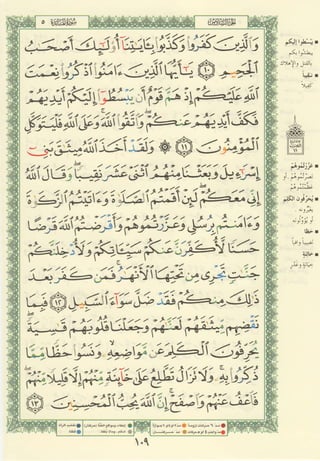 الجزء السادس
سورة المائدة ٥
وَٱلَّذِينَ كَفَرُوا۟ وَكَذَّبُوا۟ بِـَٔايَٰتِنَآ أُو۟لَٰٓئِكَ أَصْحَٰبُ
ٱلْجَحِيمِ ١٠ يَٰٓأَيُّهَا ٱلَّذِينَ ءَامَنُوا۟ ٱذْكُرُوا۟ نِعْمَتَ
ٱللَّهِ عَلَيْكُمْ إِذْ هَمَّ قَوْمٌ أَن يَبْسُطُوٓا۟ إِلَيْكُمْ أَيْدِيَهُمْ
فَكَفَّ أَيْدِيَهُمْ عَنكُمْ ۖ وَٱتَّقُوا۟ ٱللَّهَ ۚ وَعَلَى ٱللَّهِ فَلْيَتَوَكَّلِ
ٱلْمُؤْمِنُونَ ١١ ۞ وَلَقَدْ أَخَذَ ٱللَّهُ مِيثَٰقَ بَنِىٓ
إِسْرَٰٓءِيلَ وَبَعَثْنَا مِنْهُمُ ٱثْنَىْ عَشَرَ نَقِيبًا ۖ وَقَالَ ٱللَّهُ
إِنِّى مَعَكُمْ ۖ لَئِنْ أَقَمْتُمُ ٱلصَّلَوٰةَ وَءَاتَيْتُمُ ٱلزَّكَوٰةَ
وَءَامَنتُم بِرُسُلِى وَعَزَّرْتُمُوهُمْ وَأَقْرَضْتُمُ ٱللَّهَ قَرْضًا
حَسَنًا لَّأُكَفِّرَنَّ عَنكُمْ سَيِّـَٔاتِكُمْ وَلَأُدْخِلَنَّكُمْ
جَنَّٰتٍ تَجْرِى مِن تَحْتِهَا ٱلْأَنْهَٰرُ ۚ فَمَن كَفَرَ بَعْدَ
ذَٰلِكَ مِنكُمْ فَقَدْ ضَلَّ سَوَآءَ ٱلسَّبِيلِ ١٢ فَبِمَا
نَقْضِهِم مِّيثَٰقَهُمْ لَعَنَّٰهُمْ وَجَعَلْنَا قُلُوبَهُمْ قَٰسِيَةً ۖ
يُحَرِّفُونَ ٱلْكَلِمَ عَن مَّوَاضِعِهِۦ ۙ وَنَسُوا۟ حَظًّا مِّمَّا
ذُكِّرُوا۟ بِهِۦ ۚ وَلَا تَزَالُ تَطَّلِعُ عَلَىٰ خَآئِنَةٍ مِّنْهُمْ إِلَّا قَلِيلًا مِّنْهُمْ ۖ
فَٱعْفُ عَنْهُمْ وَٱصْفَحْ ۚ إِنَّ ٱللَّهَ يُحِبُّ ٱلْمُحْسِنِينَ ١٣
١٠٩
يبسطوا إليكم
يبطشوا بكم
بالقتل والإهلاك
نقيباً
كفيلاً
عزرتموهم
نصرتموهم. أو
عظمتموهم
يحرفون الكلم
يغيرونه.
أو يؤولونه
حظاً
نصيباً وافياً
خائنة
خيانة وغدر